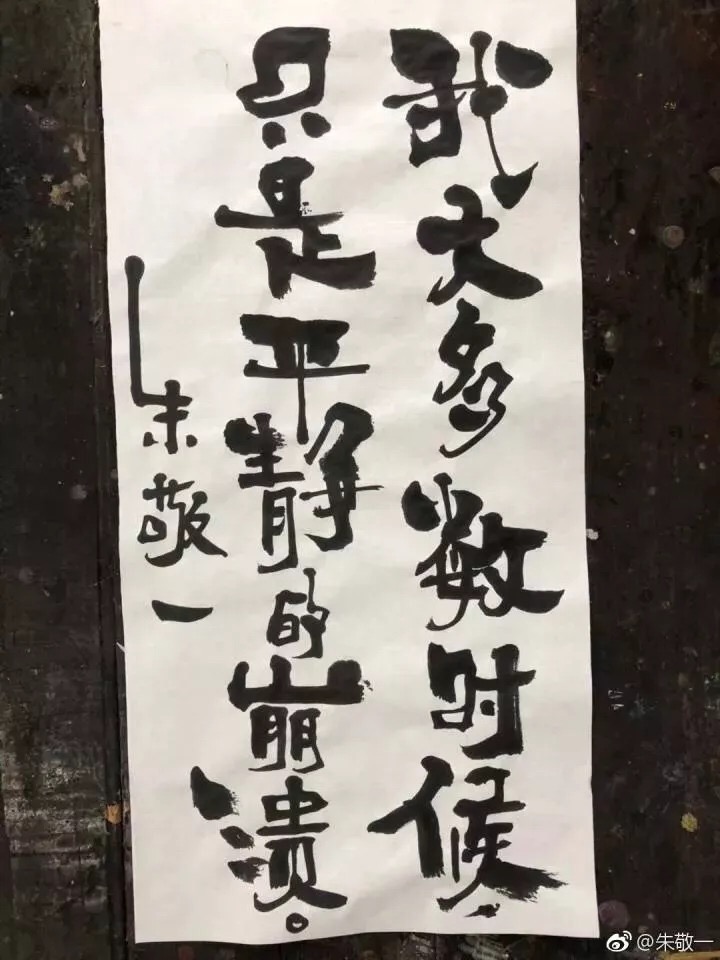 我大多数时候
只是平静的崩溃。
朱敬一
@朱敬一